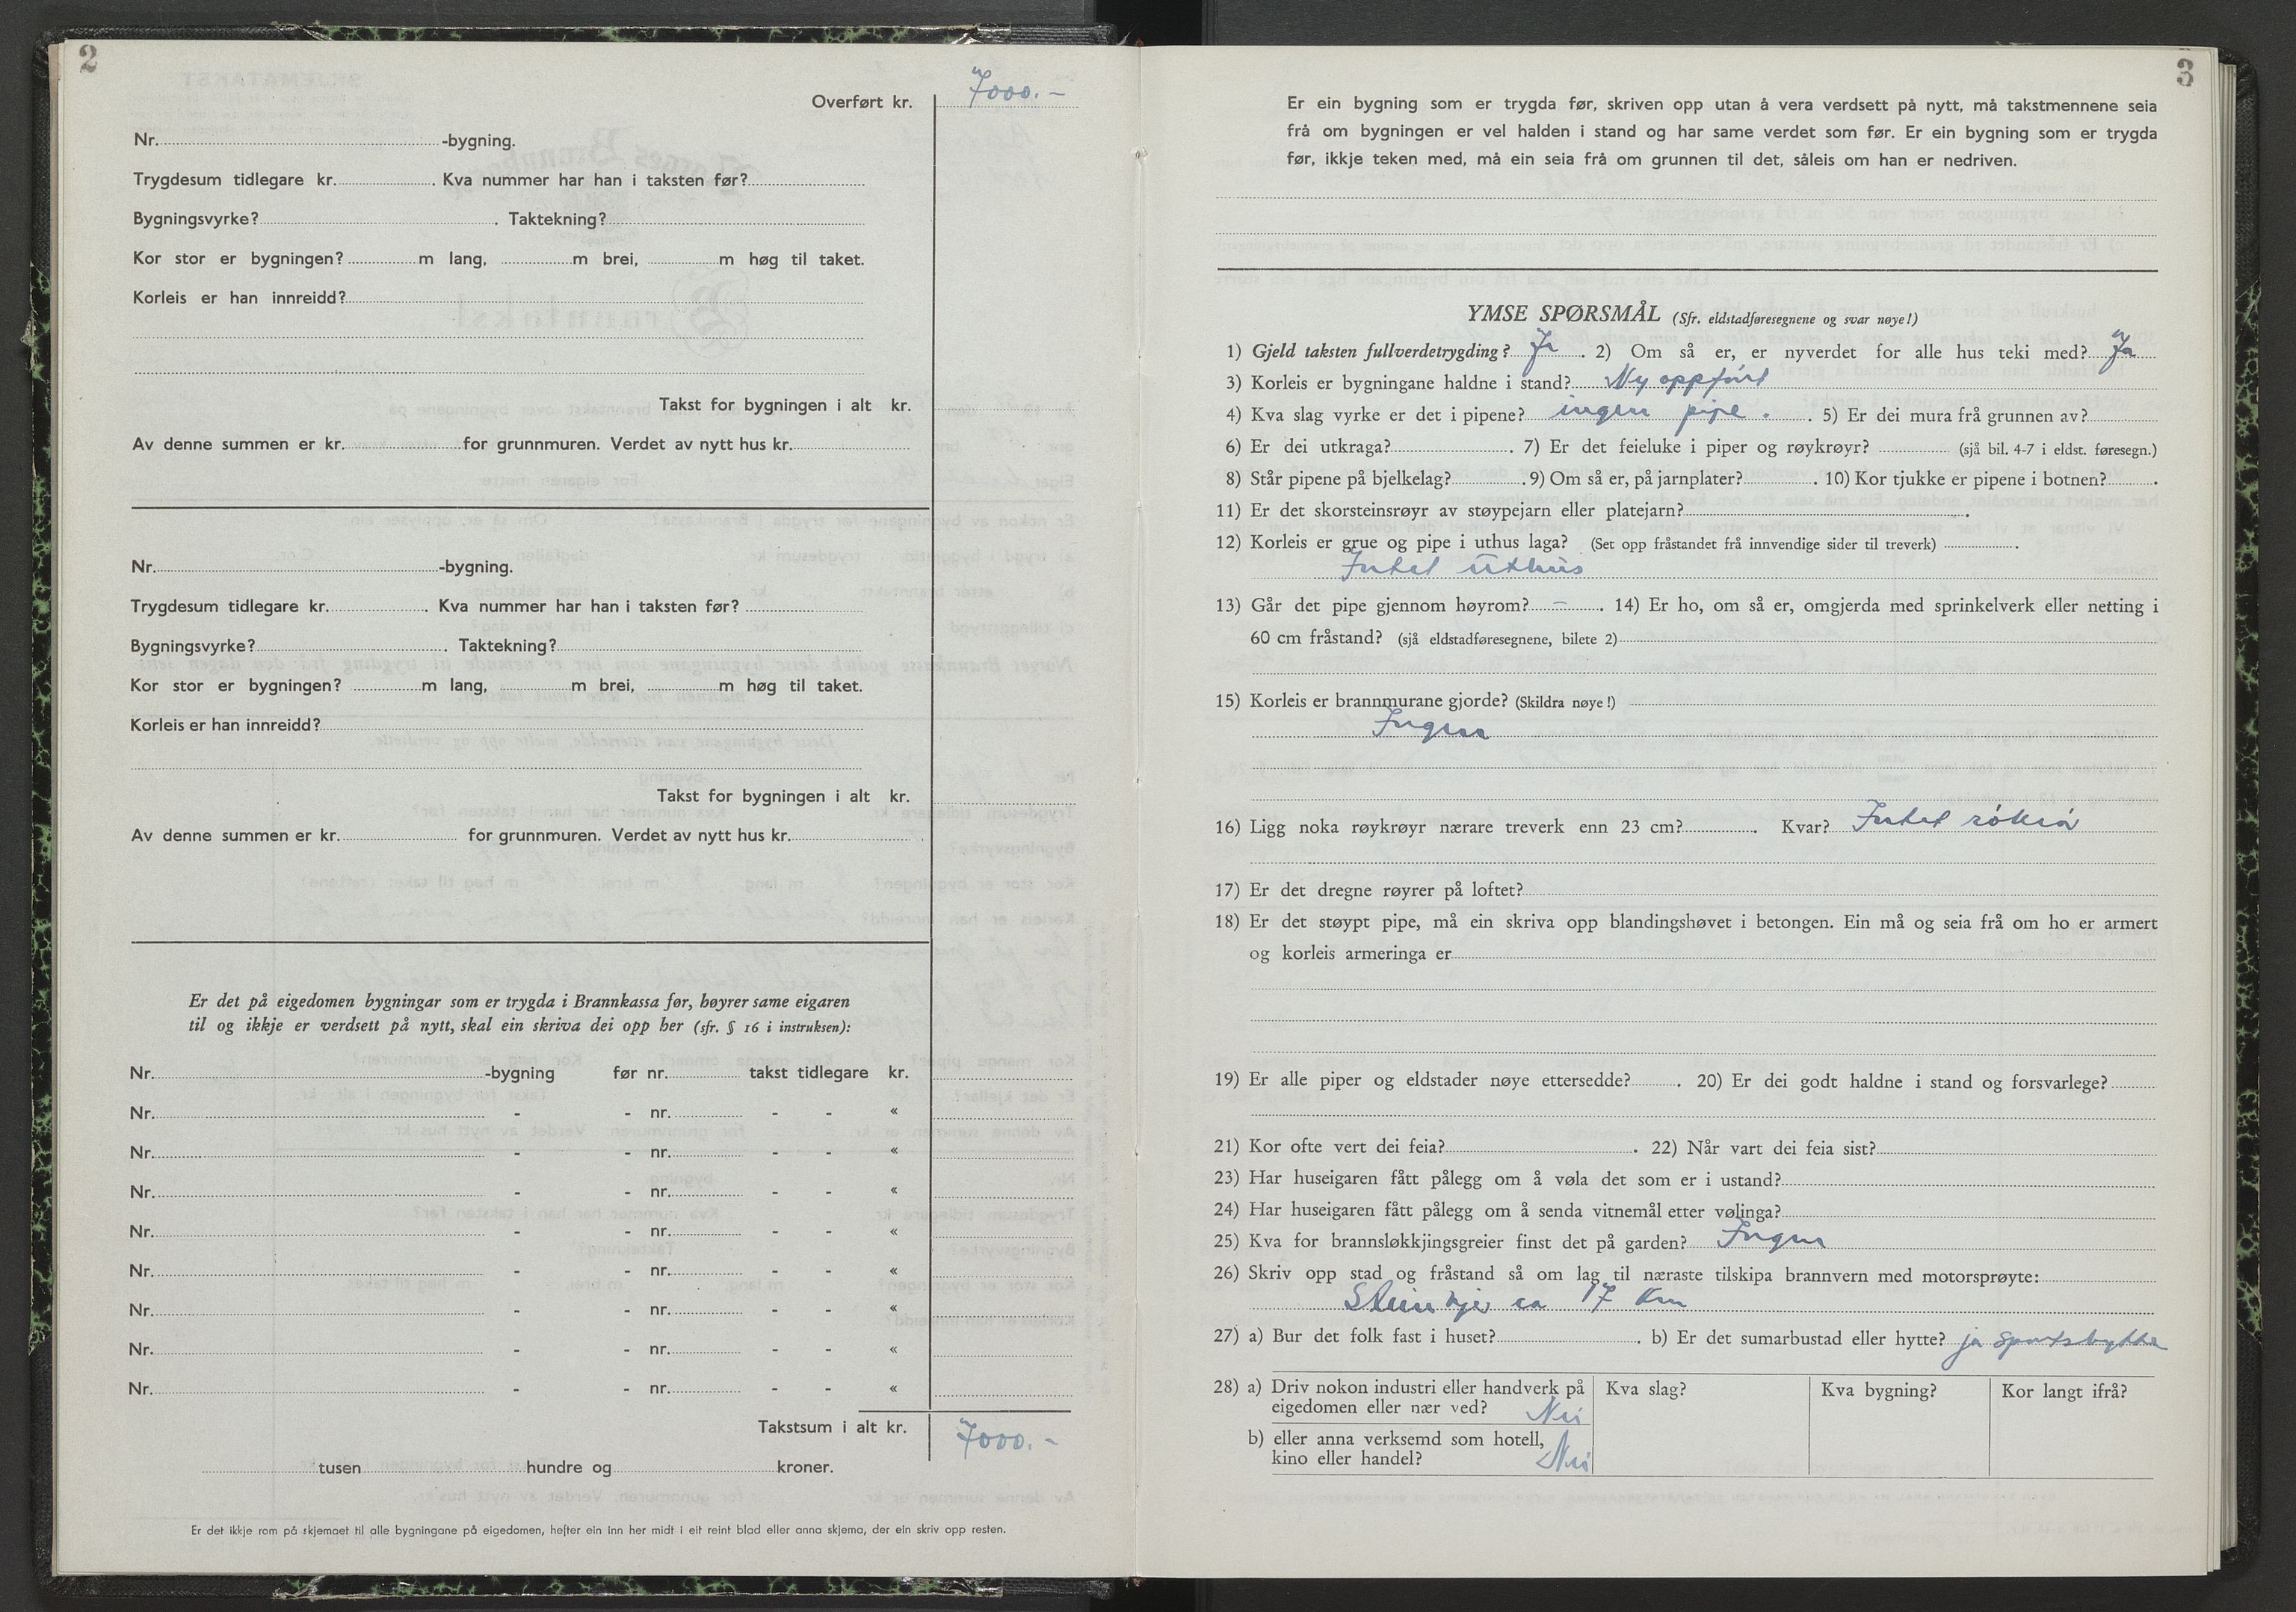 2
Overført kr. 7000.-
Nr. -bygning.
Trygdesum tidlegare kr. . Kva nummer har han i taksten før?
Bygningsvyrke? . Taktekning?
Kor stor er bygningen? m lang, m brei, m høg til taket.
Korleis er han innreidd?
Takst for bygningen i alt kr.
Av denne summen er kr. for grunnmuren. Verdet av nytt hus kr.
Nr. -bygning.
Trygdesum tidlegare kr. . Kva nummer har han i taksten før?
Bygningsvyrke? . Taktekning?
Kor stor er bygningen? m lang, m brei, m høg til taket.
Korleis er han innreidd?
Takst for bygningen i alt kr.
Av denne summen er kr. for grunnmuren. Verdet av nytt hus kr.
Er det på eigedomen bygningar som er trygda i Brannkassa før, høyrer same eigaren
til og ikkje er verdsett på nytt, skal ein skriva dei opp her (sfr. § 16 i instruksen):
Nr. -bygning før nr. takst tidlegare kr.
Nr. - - nr. - - «
Nr. - - nr. - - «
Nr. - - nr. - - «
Nr. - - nr. - - «
Nr. - - nr. - - «
Nr. - - nr. - - «
Nr. - - nr. - - «
Nr. - - nr. - - «
Takstsum i alt kr. 7000.-
tusen hundre og kroner.
Er det ikkje rom på skjemaet til alle bygningane på eigedomen, hefter ein inn her midt i eit reint blad eller anna skjema, der ein skriv opp resten.
3
Er ein bygning som er trygda før, skriven opp utan å vera verdsett på nytt, må takstmennene seia
frå om bygningen er vel halden i stand og har same verdet som før. Er ein bygning som er trygda
før, ikkje teken med, må ein seia frå om grunnen til det, såleis om han er nedriven.
YMSE SPØRSMÅL (Sfr. eldstadføresegnene og svar nøye!)
1) Gjeld taksten fullverdetrygding? Ja . 2) Om så er, er nyverdet for alle hus teki med? Ja
3) Korleis er bygningane haldne i stand? Ny oppført
4) Kva slag vyrke er det i pipene? ingen pipe . 5) Er dei mura frå grunnen av?
6) Er dei utkraga? . 7) Er det feieluke i piper og røykrøyr? (sjå bil. 4-7 i eldst. føresegn.)
8) Står pipene på bjelkelag? . 9) Om så er, på jarnplater? . 10) Kor tjukke er pipene i botnen? .
11) Er det skorsteinsrøyr av støypejarn eller platejarn? .
12) Korleis er grue og pipe i uthus laga? (Set opp fråstandet frå innvendige sider til treverk) .
Intet uthus
13) Går det pipe gjennom høyrom? - . 14) Er ho, om så er, omgjerda med sprinkelverk eller netting i
60 cm fråstand? (sjå eldstadføresegnene, bilete 2)
15) Korleis er brannmurane gjorde? (Skildra nøye!)
Ingen
16) Ligg noka røykrøyr nærare treverk enn 23 cm? . Kvar? Intet
17) Er det dregne røyrer på loftet?
18) Er det støypt pipe, må ein skriva opp blandingshøvet i betongen. Ein må og seia frå om ho er armert
og korleis armeringa er
19) Er alle piper og eldstader nøye ettersedde? . 20) Er dei godt haldne i stand og forsvarlege?
21) Kor ofte vert dei feia? . 22) Når vart dei feia sist?
23) Har huseigaren fått pålegg om å vøla det som er i ustand?
24) Har huseigaren fått pålegg om å senda vitnemål etter vølinga?
25) Kva for brannsløkkjingsgreier finst det på garden? Ingen
26) Skriv opp stad og fråstand så om lag til næraste tilskipa brannvern med motorsprøyte:
Steinkjer ca 17 km
27) a) Bur det folk fast i huset? . b) Er det sumarbustad eller hytte? ja sportshytte
28) a) Driv nokon industri eller handverk på Kva slag? Kva bygning? Kor langt ifrå?
eigedomen eller nær ved? Nei
b) eller anna verksemd som hotell,
kino eller handel? Nei